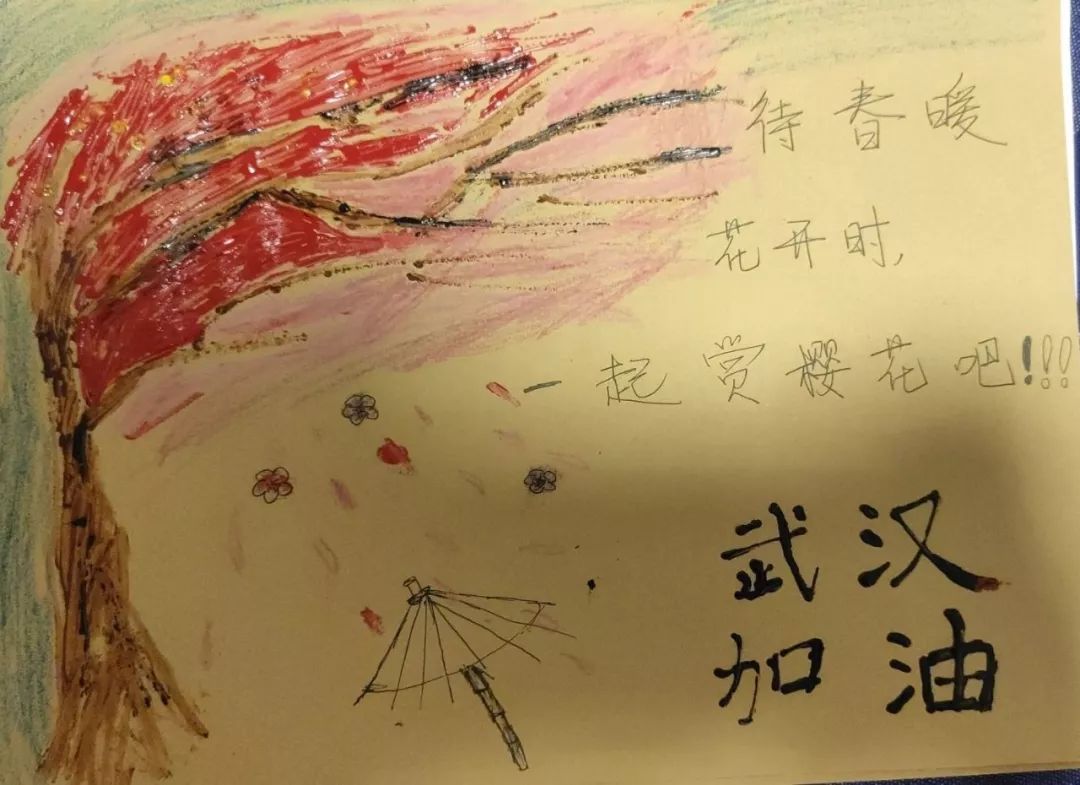 待春暖
花开时,
一起赏樱花吧!!!
武汉
加油